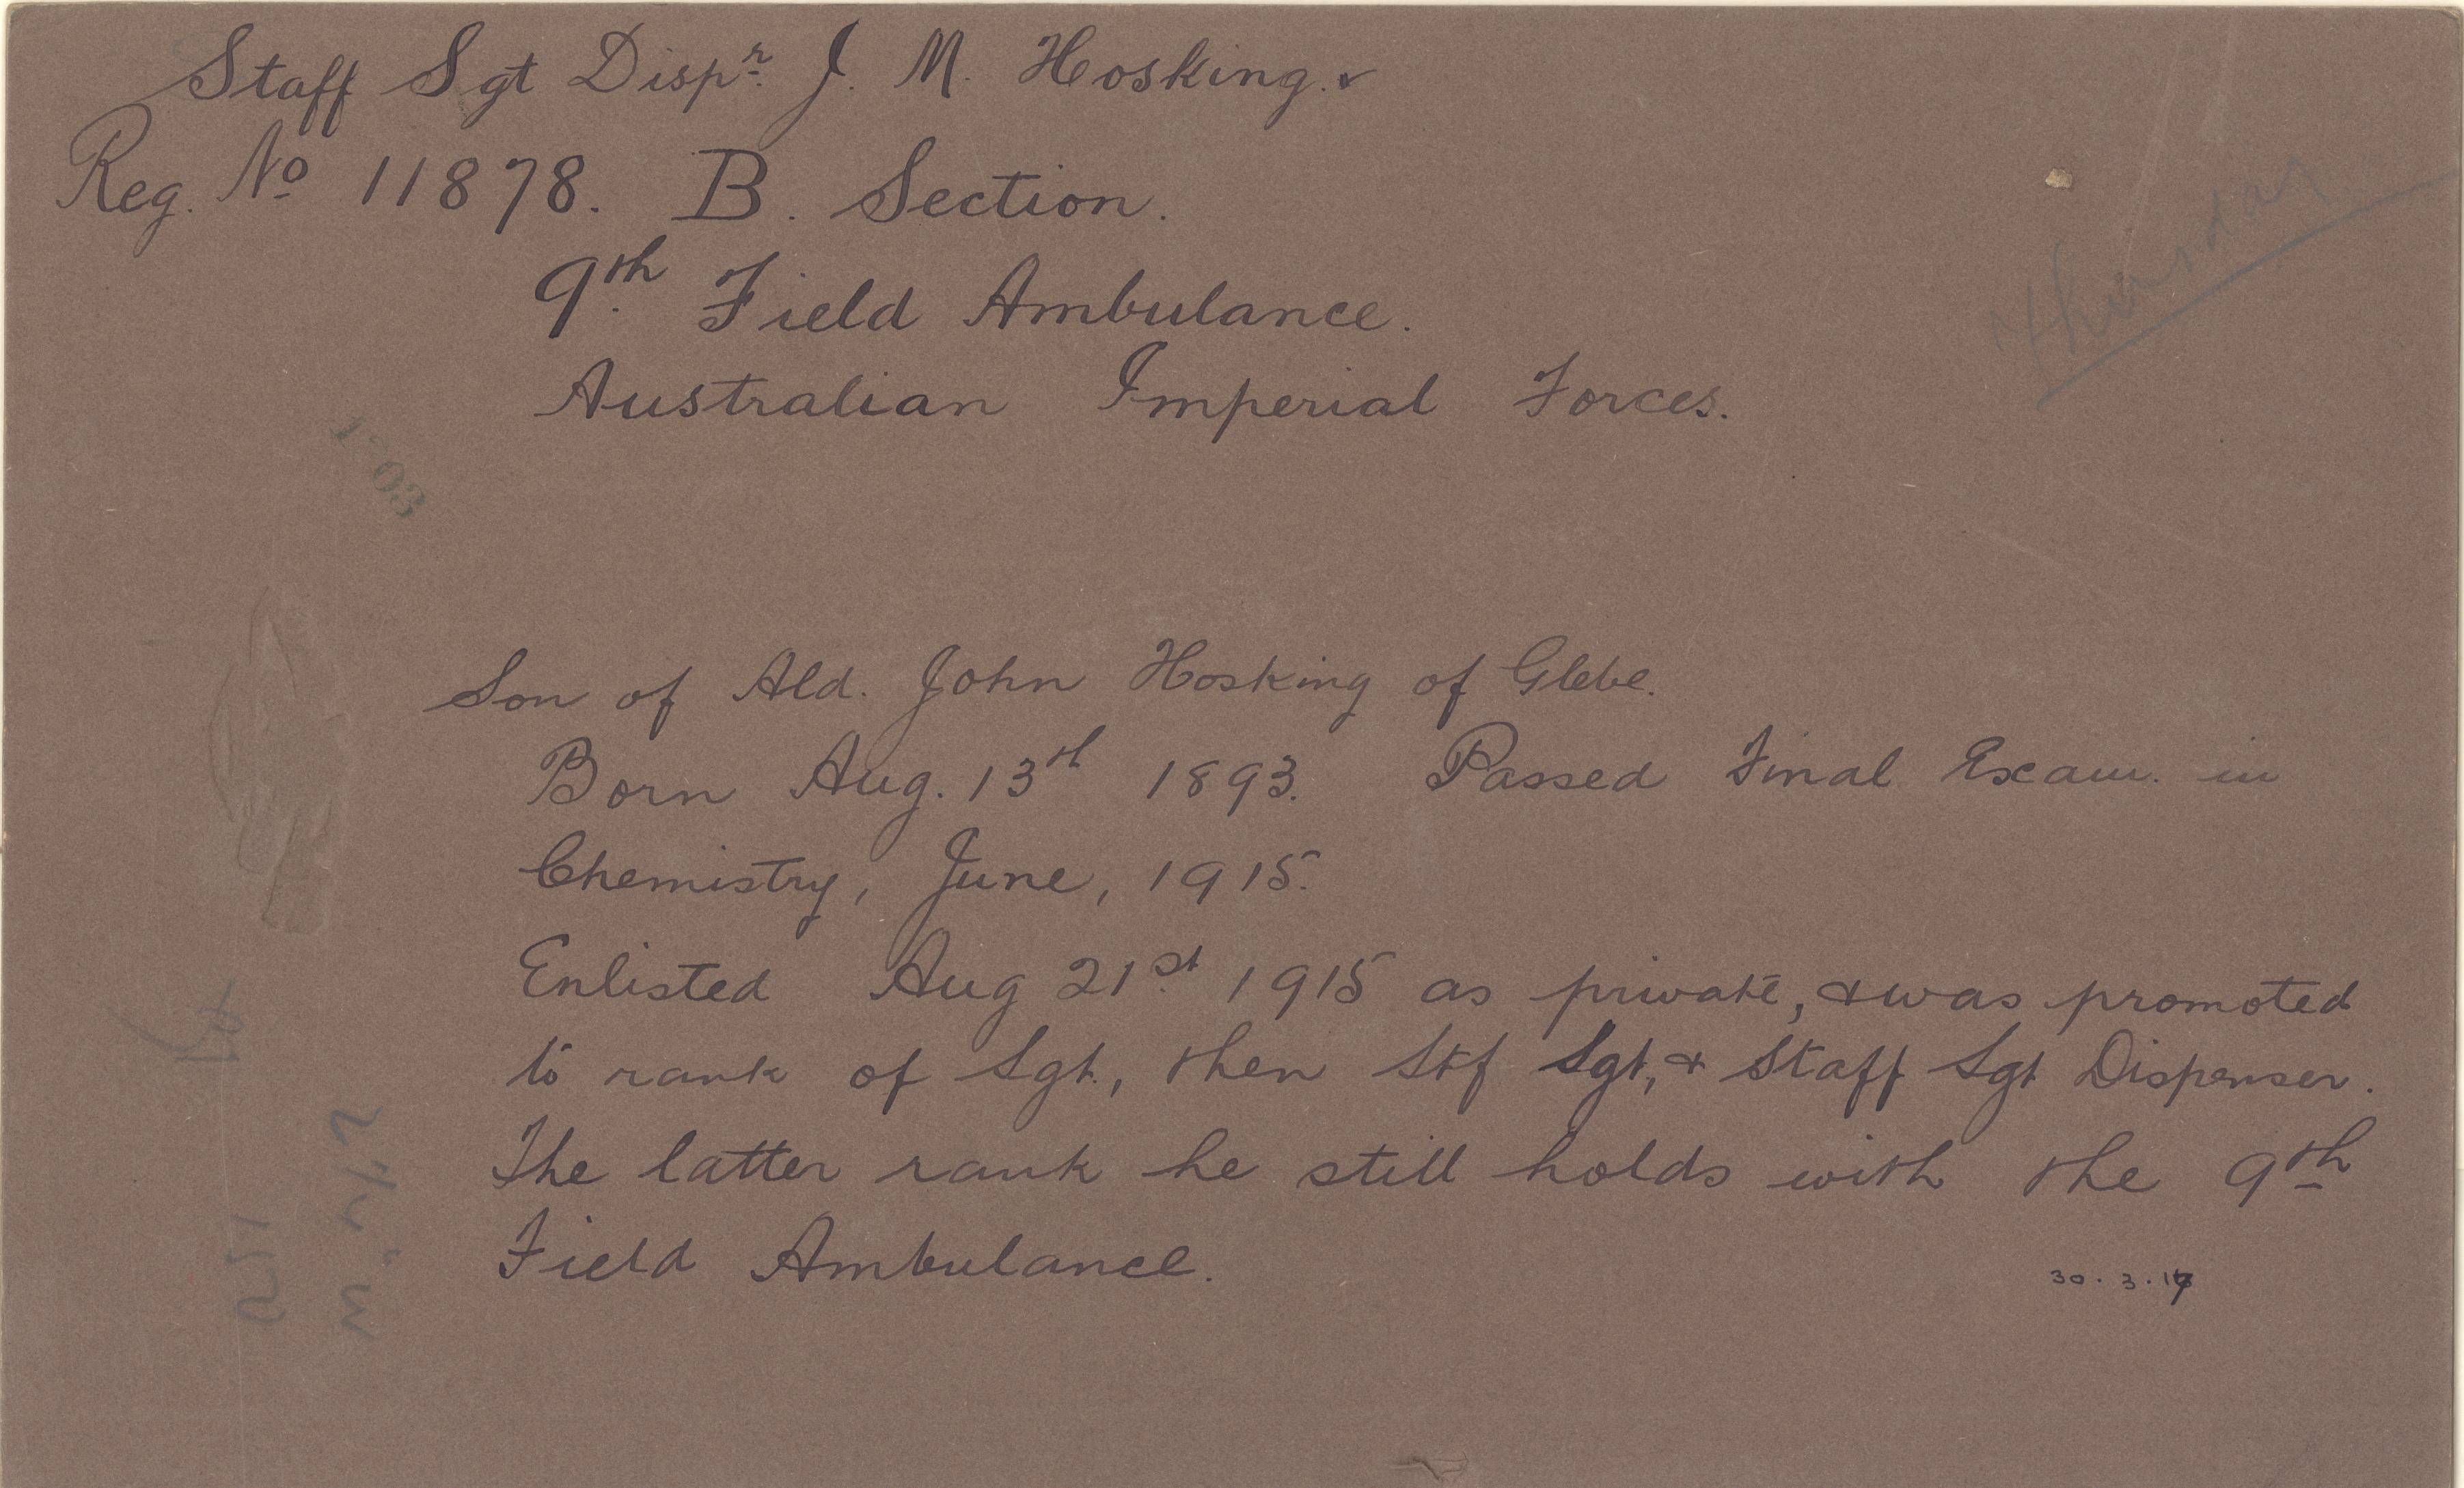 Staff Sgt Dispr. J. M. Hosking.
Reg. No 11878. B. Section.
9th. Field Ambulance.
Australian Imperial Forces.
Thursday
Son of Ald. John Hosking of Glebe.
Born Aug. 13th 1893. Passed Final Exam. in
Chemistry, June, 1915.
Enlisted Aug 21st. 1915 as private, & was promoted
to rank of Sgt., then Stf Sgt, & Staff Sgt Dispenser.
The latter rank he still holds with the 9th
Field Ambulance.
30.3.17